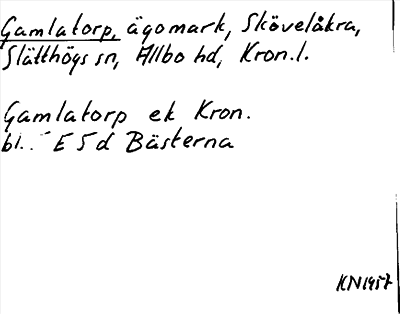 Gamlatorp, ägomark, Skövelåkra,
Slätthögs sn, Allbo hd, Kron.l.
Gamlatorp ek Kron.
bl.. E 5 d Bästerna
KN1957